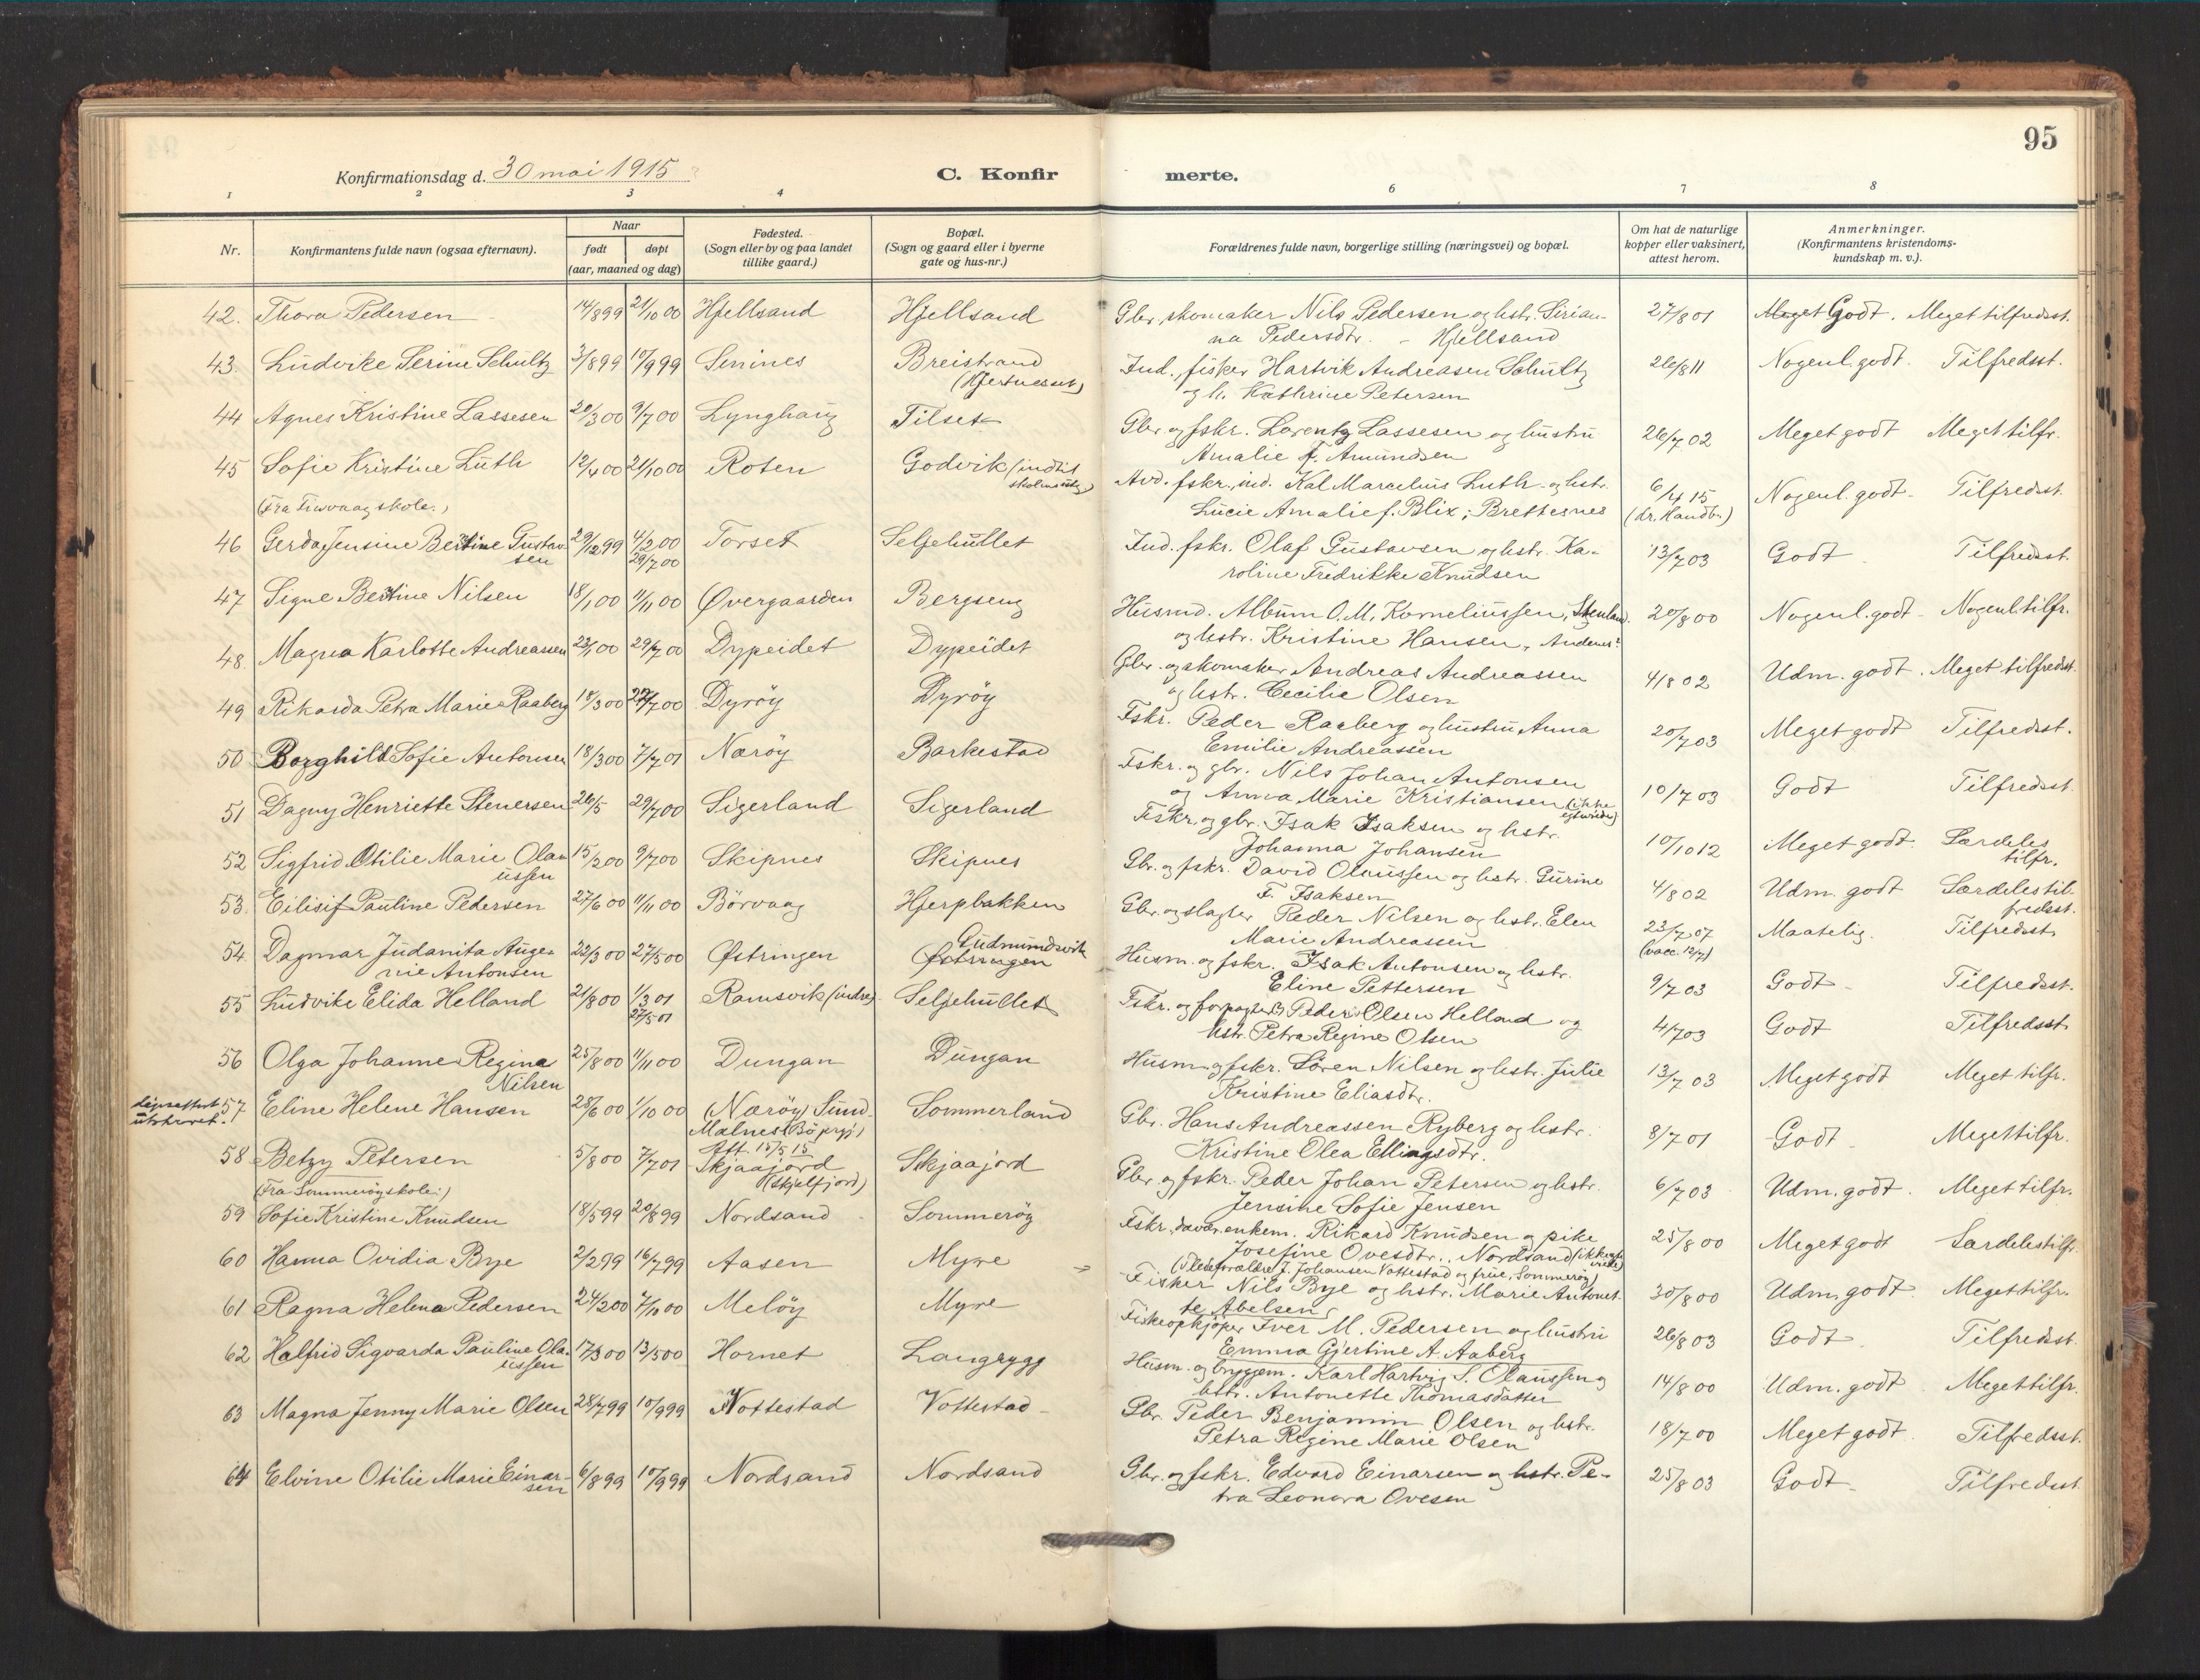 95
Konfirmationsdag d. 30 mai 1915
C. Konfirmerte.
1 2 3 4 6 7 8
Nr.
Konfirmantens fulde navn (ogsaa efternavn).
Naar
født døpt
(aar, maaned og dag)
Fødested.
(Sogn eller by og paa landet
tillike gaard.)
Bopæl.
(Sogn og gaard eller i byerne
gate og hus-nr.)
Forældrenes fulde navn, borgerlige stilling (næringsvei) og bopæl.
Om hat de naturlige
kopper eller vaksinert,
attest herom.
Anmerkninger.
(Konfirmantens kristendoms-
kundskap m. v.).
42. Thora Pedersen 14/8 99 21/10 00 Hjellsand Hjellsand Gbr., skomaker Nils Pedersen og hstr. Sirian- 27/8 01 Meget Godt. Meget tilfredsst.
na Pedersdtr. - Hjellsand
43. Ludvike Serine Schultz 3/8 99 10/9 99 Smines Breistrand Ind., fisker Hartvik Andreasen Schultz 26/8 11 Nogenl. godt. Tilfredsst.
og h. Kathrine Petersen
44 Agnes Kristine Lassesen 20/3 00 9/7 00 Lynghaug Tilset Gbr. og fskr. Lorentz Lassesen og hustru 26/7 02 Meget godt Meget tilfr.
Amalie f. Amundsen
45 Sofie Kristine Luth 12/4 00 21/10 00 Roten Godvik (indtil Avd. fskr., ind. Kal Marcelius Luth og hstr. 6/4 15 Nogenl. godt. Tilfredsst.
(Fra Tinvaag skole.) Lucie Amalie f. Blix; Brettesnes (dr. Handb.)
46 Gerda Jensine Bertine Gustav- 29/12 99 4/2 00 Torset Seljehullet Ind. fskr. Olaf Gustavsen og hstr. Ka- 13/7 03 Godt Tilfredsst.
sen 29/7 00 roline Fredrikke Knudsen
47 Signe Bertine Nilsen 18/1 00 11/11 00 Øvergaarden Bergseng Husmd. Album O. M. Korneliussen, Stenland. 20/8 00 Nogenl. godt - Nogenl tilfr.
og hstr. Kristine Hansen, Andenes
48. Magna Karlotte Andreassen 22/1 00 29/7 00 Dypeidet Dypeidet Gbr. og skomaker Andreas Andreassen 4/8 02 Udm. godt. Meget tilfredsst.
og hstr. Cecilie Olsen
49 Rikarda Petra Marie Raaberg 18/3 00 22/7 00 Dyrøy Dyrøy Fskr. Peder Raaberg og hustru Anna 20/7 03 Meget godt Tilfredsst.
Emilie Andreassen
50 Borghild Sofie Antonsen 18/3 00 7/7 01 Nærøy Barkestad Fskr. og gbr. Nils Johan Antonsen 10/7 03 Godt Tilfredsst.
og Anna Marie Kristiansen (ikke
51 Dagny Henriette Stenersen 26/5 29/7 00 Sigerland Sigerland Fiskr. og gbr. Isak Isaksen og hstr. 10/10 12 Meget godt. Særdeles
Johanna Johansen tilfr.
52 Sigfrid Otilie Marie Ola- 15/2 00 9/7 00 Skipnes Skipnes Gbr. og fskr. David Olaussen og hstr. Gurine 4/8 02 Udm. godt Særdeles til-
ussen F. Isaksen fredsst.
53. Eilisif Pauline Pedersen 27/6 00 11/11 00 Børvaag Hjerpbakken Gbr. og slagter Peder Nilsen og hstr. Elen 23/7 07 Maatelig. Tilfredsst.
Marie Andreassen (vacc. 12/7)
54 Dagmar Judanita Auge- 22/3 00 27/5 00 Østringen Østringen Gudmundsvik Husm. og fskr. Isak Antonsen og hstr. 9/7 03 Godt - Tilfredsst.
nie Antonsen Eline Pettersen
55 Ludvike Elida Helland 21/8 00 1/3 01 Ramsvik (indre) Seljehullet Fskr. og forpagter Peder Olsen Helland og 4/7 03 Godt Tilfredsst.
27/5 01 hstr. Petra Regine Olsen
56 Olga Johanne Regina 25/8 00 11/11 00 Dungan Dungan Husm. og fskr. Søren Nilsen og hstr. Julie 13/7 03 Meget godt Meget tilfr.
Nilsen Kristine Eliasdtr.
57 Eline Helene Hansen 28/6 00 1/10 00 (Nærøy) Sund Sommerland Gbr. Hans Andreassen Ryberg og hstr. 8/7 01 Godt Meget tilfr.
utskrevet. Malnes (Bø prgj.) Kristine Olea Ellingsdtr.
Att. 15/5 15
58 Betzy Petersen 5/8 00 7/7 01 Skjaajord Skjaajord Gbr. og fskr. Peder Johan Petersen og hstr. 6/7 03 Udm. godt. Meget tilfr.
(Fra Sommerøy skole:) (Skjelfjord) Jensine Sofie Jensen
59 Sofie Kristine Knudsen 18/5 99 20/8 99 Nordsand Sommerøy Fskr., davær. enkem. Rikard Knudsen og pike 25/8 00 Meget godt Særdeles tilfr.
Josefine Ovesdtr., Nordsand
(Pleieforældre J. Johansen Vottestad og frue, Sommerøy)
60 Hanna Ovidia Bye 2/2 99 16/7 99 Aasen Myre Fisker Nils Bye og hstr. Marie Antonet- 30/8 00 Udm. godt. Meget tilfr.
te Abelsen
61 Ragna Helena Pedersen 24/2 00 7/10 00 Meløy Myre Fiskeopkjøper Iver M. Pedersen og hustru 26/8 03 Godt Tilfredsst.
Emma Gjertine A. Aaberg
62 Halfrid Sigvarda Pauline Ola- 17/3 00 13/5 00 Hornet Langrygg Husm. og byggem. Karl Hartvig S. Olaussen og 14/8 00 Udm. godt Meget tilfr.
ussen hstr. Antonette Thomasdatter
63 Magna Jenny Marie Olsen 28/7 99 10/9 99 Vottestad Vottestad - Gbr. Peder Benjamin Olsen og hstr. 18/7 00 Meget godt Tilfredsst.
Petra Regine Marie Olsen
64 Elvine Otilie Marie Einar- 6/8 99 10/9 99 Nordsand Nordsand Gbr. og fskr. Edvard Einarsen og hstr. Pe- 25/8 03 Godt Tilfredsst.
sen tra Leonora Ovesen